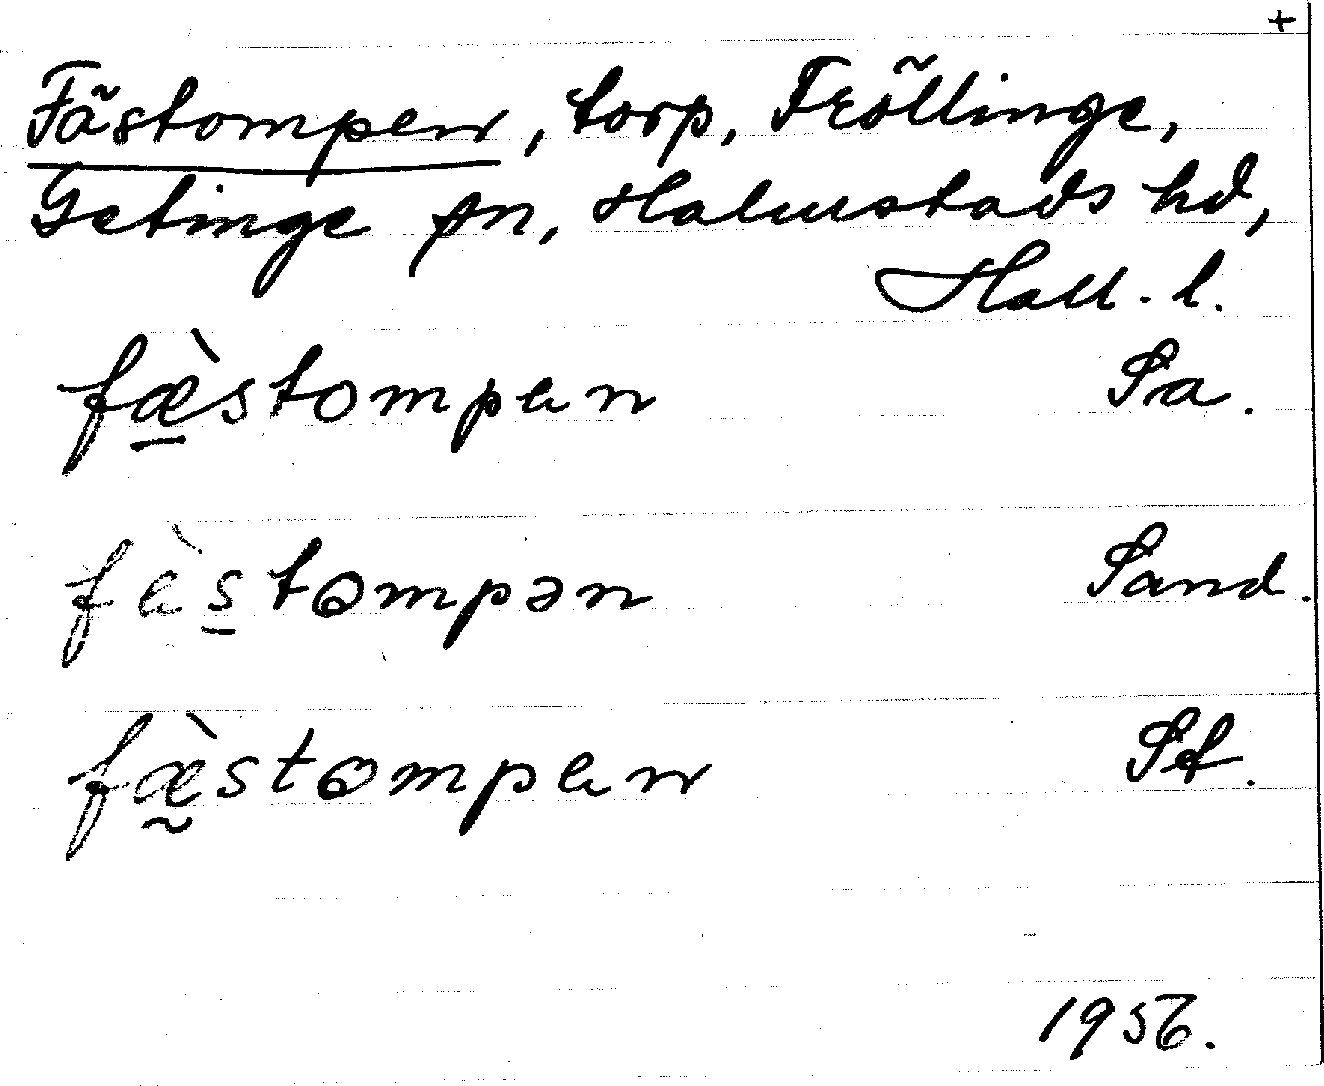 +
Fästompen, torp, Fröllinge,
Getinge sn, Halmstads hd,
Hall. l.
fæ̠̀stompen Sa.
fès̠tompən Sand.
fæ̰̀stompen Sf.
1956.